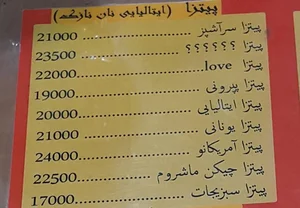 پیتزا (ایتالیایی نان نازک)
پیتزا سرآشپز ........................ 21000
پیتزا ؟؟؟؟؟؟ ........................ 23500
پیتزا love........................ 22000
پیتزا پپرونی........................ 19000
پیتزا ایتالیایی........................ 20000
پیتزا یونانی ........................ 21000
پیتزا آمریکانو........................ 24000
پیتزا چیکن ماشروم ................ 22500
پیتزا سبزیجات ........................ 17000